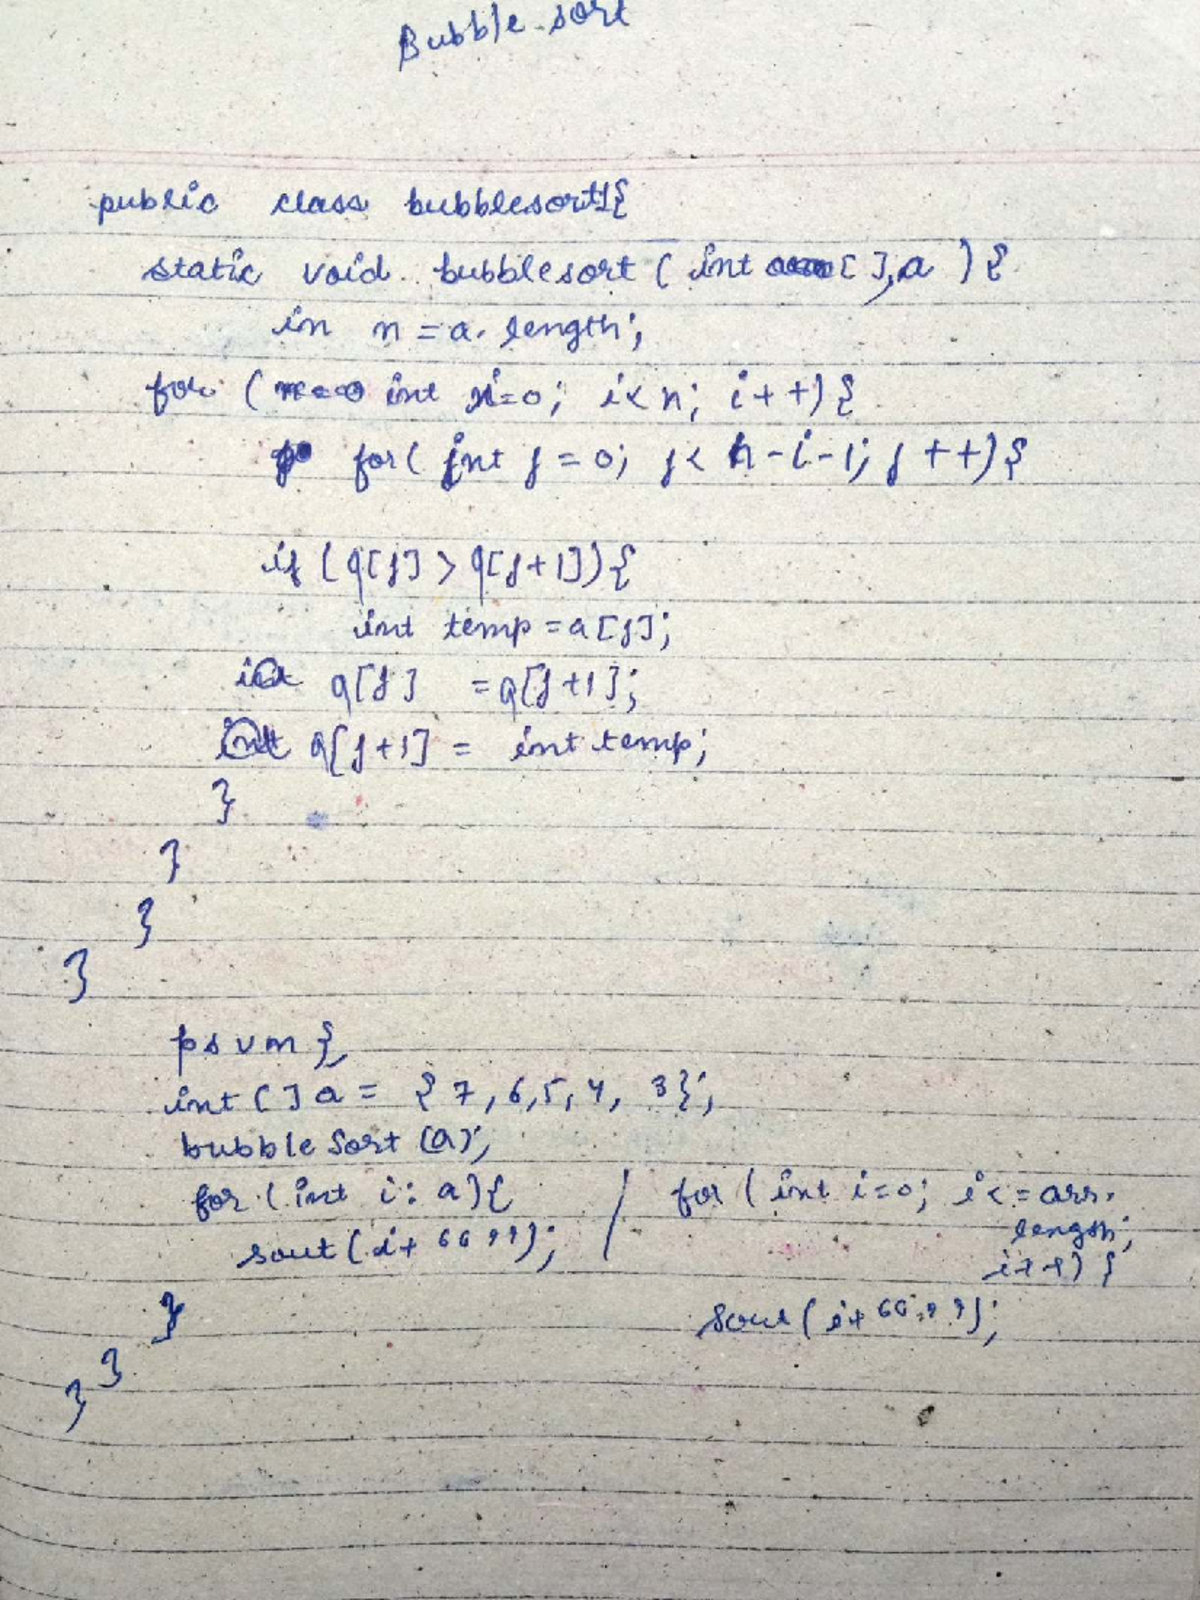 Bubble sort
public class bubblesort1{
static void bubblesort ( int [ ], a ) {
in n = a. length;
for ( int i=0; i< n; i + +) {
for( int j = 0; j < n-i-1; j ++) {
if (a[j] > a[j+1]) {
int temp = a[j];
a[j] = a[j+1];
int a[j+1] = int temp;
}
}
}
}
psvm {
int [ ] a = { 7, 6, 5, 4, 3};
bubble Sort (a);
for ( int i : a) { / for ( int i=0; i< = arr.
length;
sout ( i+ " ");
i++) {
} sout ( i+ " ");
}
}